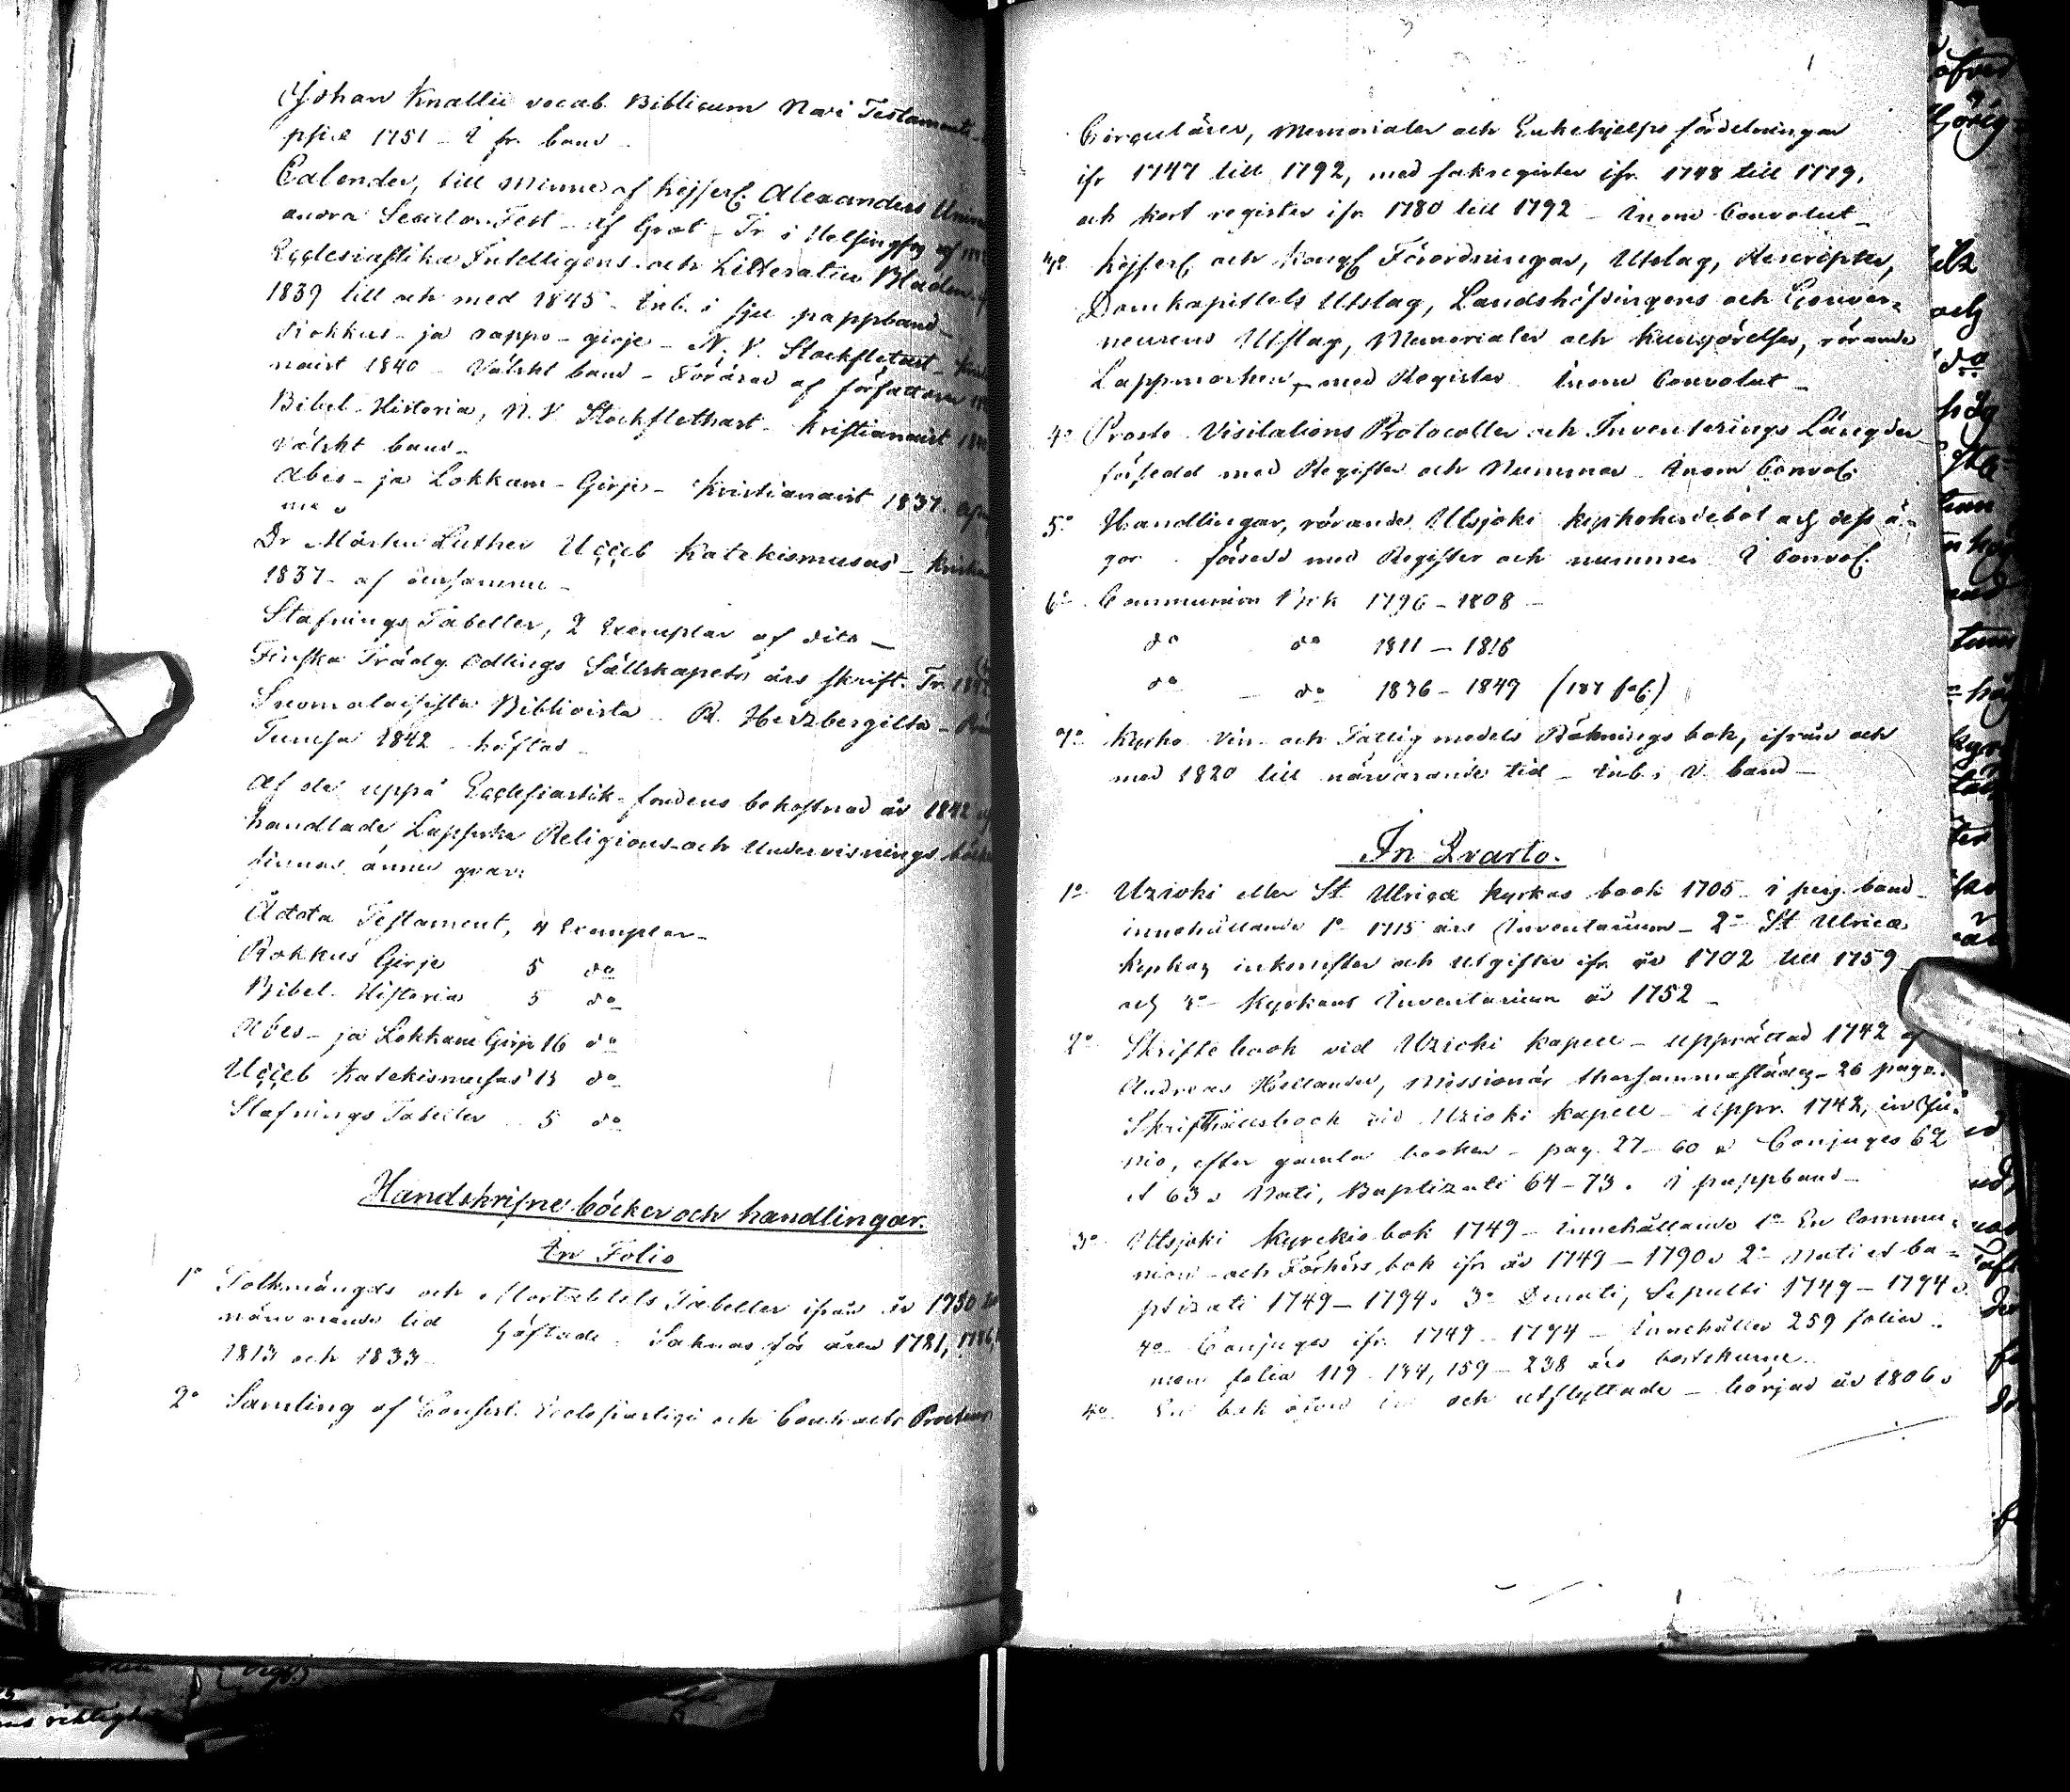 Johan Knallii vocab. Biblicum Novi Testamenti
1751 - 1 fr. band
Calender, till minne af Kejserl. Alexanders
andra Secular Fest - af Grot - Tr. i Helsingfors
Ecclesiastika Intelligens- och Litteratur Bladen
1839 till och med 1845 - Inb. i sju pappband -
Rokkus- ja oappo-girje - N. V. Stockfletast -
naist 1840 - Välskt band - Förärad af författaren
Bibel-Historia, N. V. Stockflethast - Kristianaist
Välskt band -
Abes- ja Lokkam-Girje - Kristianaist 1837.
Dr Mårten Luther Uççeb Katekismusas -
1837 - af densamme -
Stafnings Tabeller, 2 Exemplar af dito -
Finska Trädg. Odlings Sällskapets års skrift. Tr.
Suomalaisista Biblioista R. Herzbergilta -
Turusa 1842 - häftad -
Af de uppå Ecclesiastik-fondens bekostnad år 1842
handlade Lappska Religions- och Undervisnings
finnas ännu qvar:
Ådda Testament, 4 Exemplar -
Rokkus Girje 5 do
Bibel. Historia 5 do
Abes- ja Lokkam Girje 16 do
Uççeb Katekismusas 13 do
Stafnings Tabeller 5 do
Handskrifne böcker och handlingar.
In Folio
1o Folkmängds och Mortalitets Tabeller ifrån år
närvarande tid Häftade. Saknas för åren 1781,
1813 och 1833
2o Samling af Consist. Ecclesiastici och Contracts Prostens
Circulärer, Memorialer och Enkehjelps fördelningar
ifr. 1747 till 1792, med sakregister ifr. 1748 till 1779,
och kort register ifr. 1780 till 1792 - Inom Convolut -
Kejserl. och Kongl. Förordningar, Utslag, Rescripter,
Domkapitlets Utslag, Landshöfdingens och Gouver-
neurens Utslag, Memorialer och Kungörelser, rörande
Lappmarken, - med Register Inom Convolut -
4o Prosta Visitations Protocoller och Inventerings Längder
försedd med Register och Nummer - Inom Convol.
5o Handlingar, rörande Utsjoki kyrkoherdebol och dess ä-
gor. försedd med Register och nummer 1 Convol.
6o Communion Bok 1796 - 1808 -
do do 1811 - 1816
do - do 1836 - 1849 (187 fol.)
7o Kyrko- Vin- och Fattig medels Räknings bok, ifrån och
med 1820 till närvarande tid - Inb. i band -
In Qvarto.
1o Uzioki eller St Ulricæ Kyrkas book 1705 - i perg. band -
innehållande 1o 1715 års Inventarium - 2o St Ulricæ
Kyrkas inkomster och utgifter ifr. år 1702 till 1759
och 3o Kyrkans Inventarium år 1752 -
2o Skrifte book vid Uzioki Kapell - upprättad 1742 af
Andreas Hellander, Missionär thersammastädes - 26 pagr.
Skriftbook vid Uzioki Kapell - uppr. 1742, in Ju-
nio, efter gamla booken - pag. 27 - 60. Conjuges 62
et 63. Nati, Baptizati 64 - 73. i pappband -
3o Utsjoki Kyrckio bok 1749 - innehållande 1o En Commu-
nion- och Förhörs bok ifr. år 1749 - 1790. 2o Nati et ba-
ptizati 1749 - 1794. 3o Denati, Sepulti 1749 - 1794.
4o Conjuges ifr. 1749 - 1794 - Innehåller 259 folier.
men folia 119 - 134, 159 - 238 äro bortskurne.
4o En bok öfver in och utflyttade - börjad år 1806.